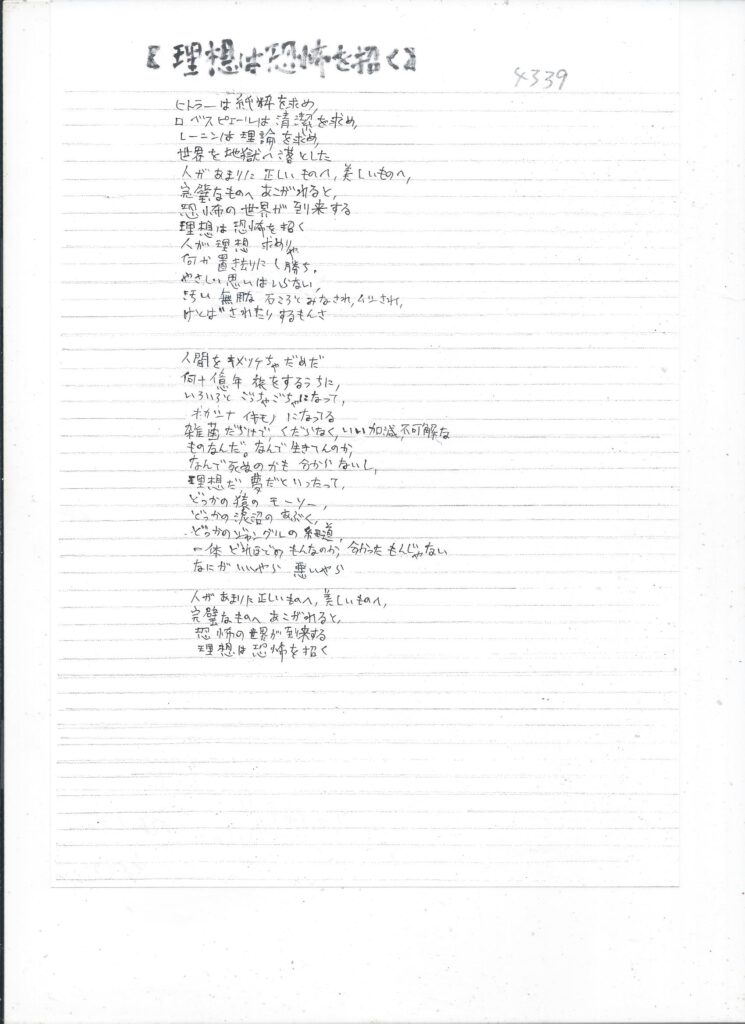 〖理想は恐怖を招く〗
4339
ヒトラーは純粋を求め,
ロベスピエールは清潔を求め,
レーニンは理論を求め,
世界を地獄へ落とした
人があまりに正しいものへ,美しいものへ,
完璧なものへあこがれると,
恐怖の世界が到来する
理想は恐怖を招く
人が理想 求めりゃ
何か置き去りにし勝ち,
やさしい思いはいらない,
汚い 無用な 石ころとみなされ,
けとばされたりするもんさ
人間をキメツケちゃだめだ
何十億年 旅をするうちに,
いろいろとごっちゃごちゃになって,
イキモノになってる
雑菌だらけで,くだらなく,いい加減,不可解な
ものなんだ。なんで生きてんのか,
なんで死ぬのかも分からないし,
理想だ,夢だといったって,
どっかの猿のモーソー,
どっかの泥沼のあぶく,
どっかのジャングルの細道,
一体どれほどのもんなのか,分かったもんじゃない
なにがいいやら 悪いやら
人があまりに正しいものへ,美しいものへ,
完璧なものへあこがれると,
恐怖の世界が到来する
理想は恐怖を招く